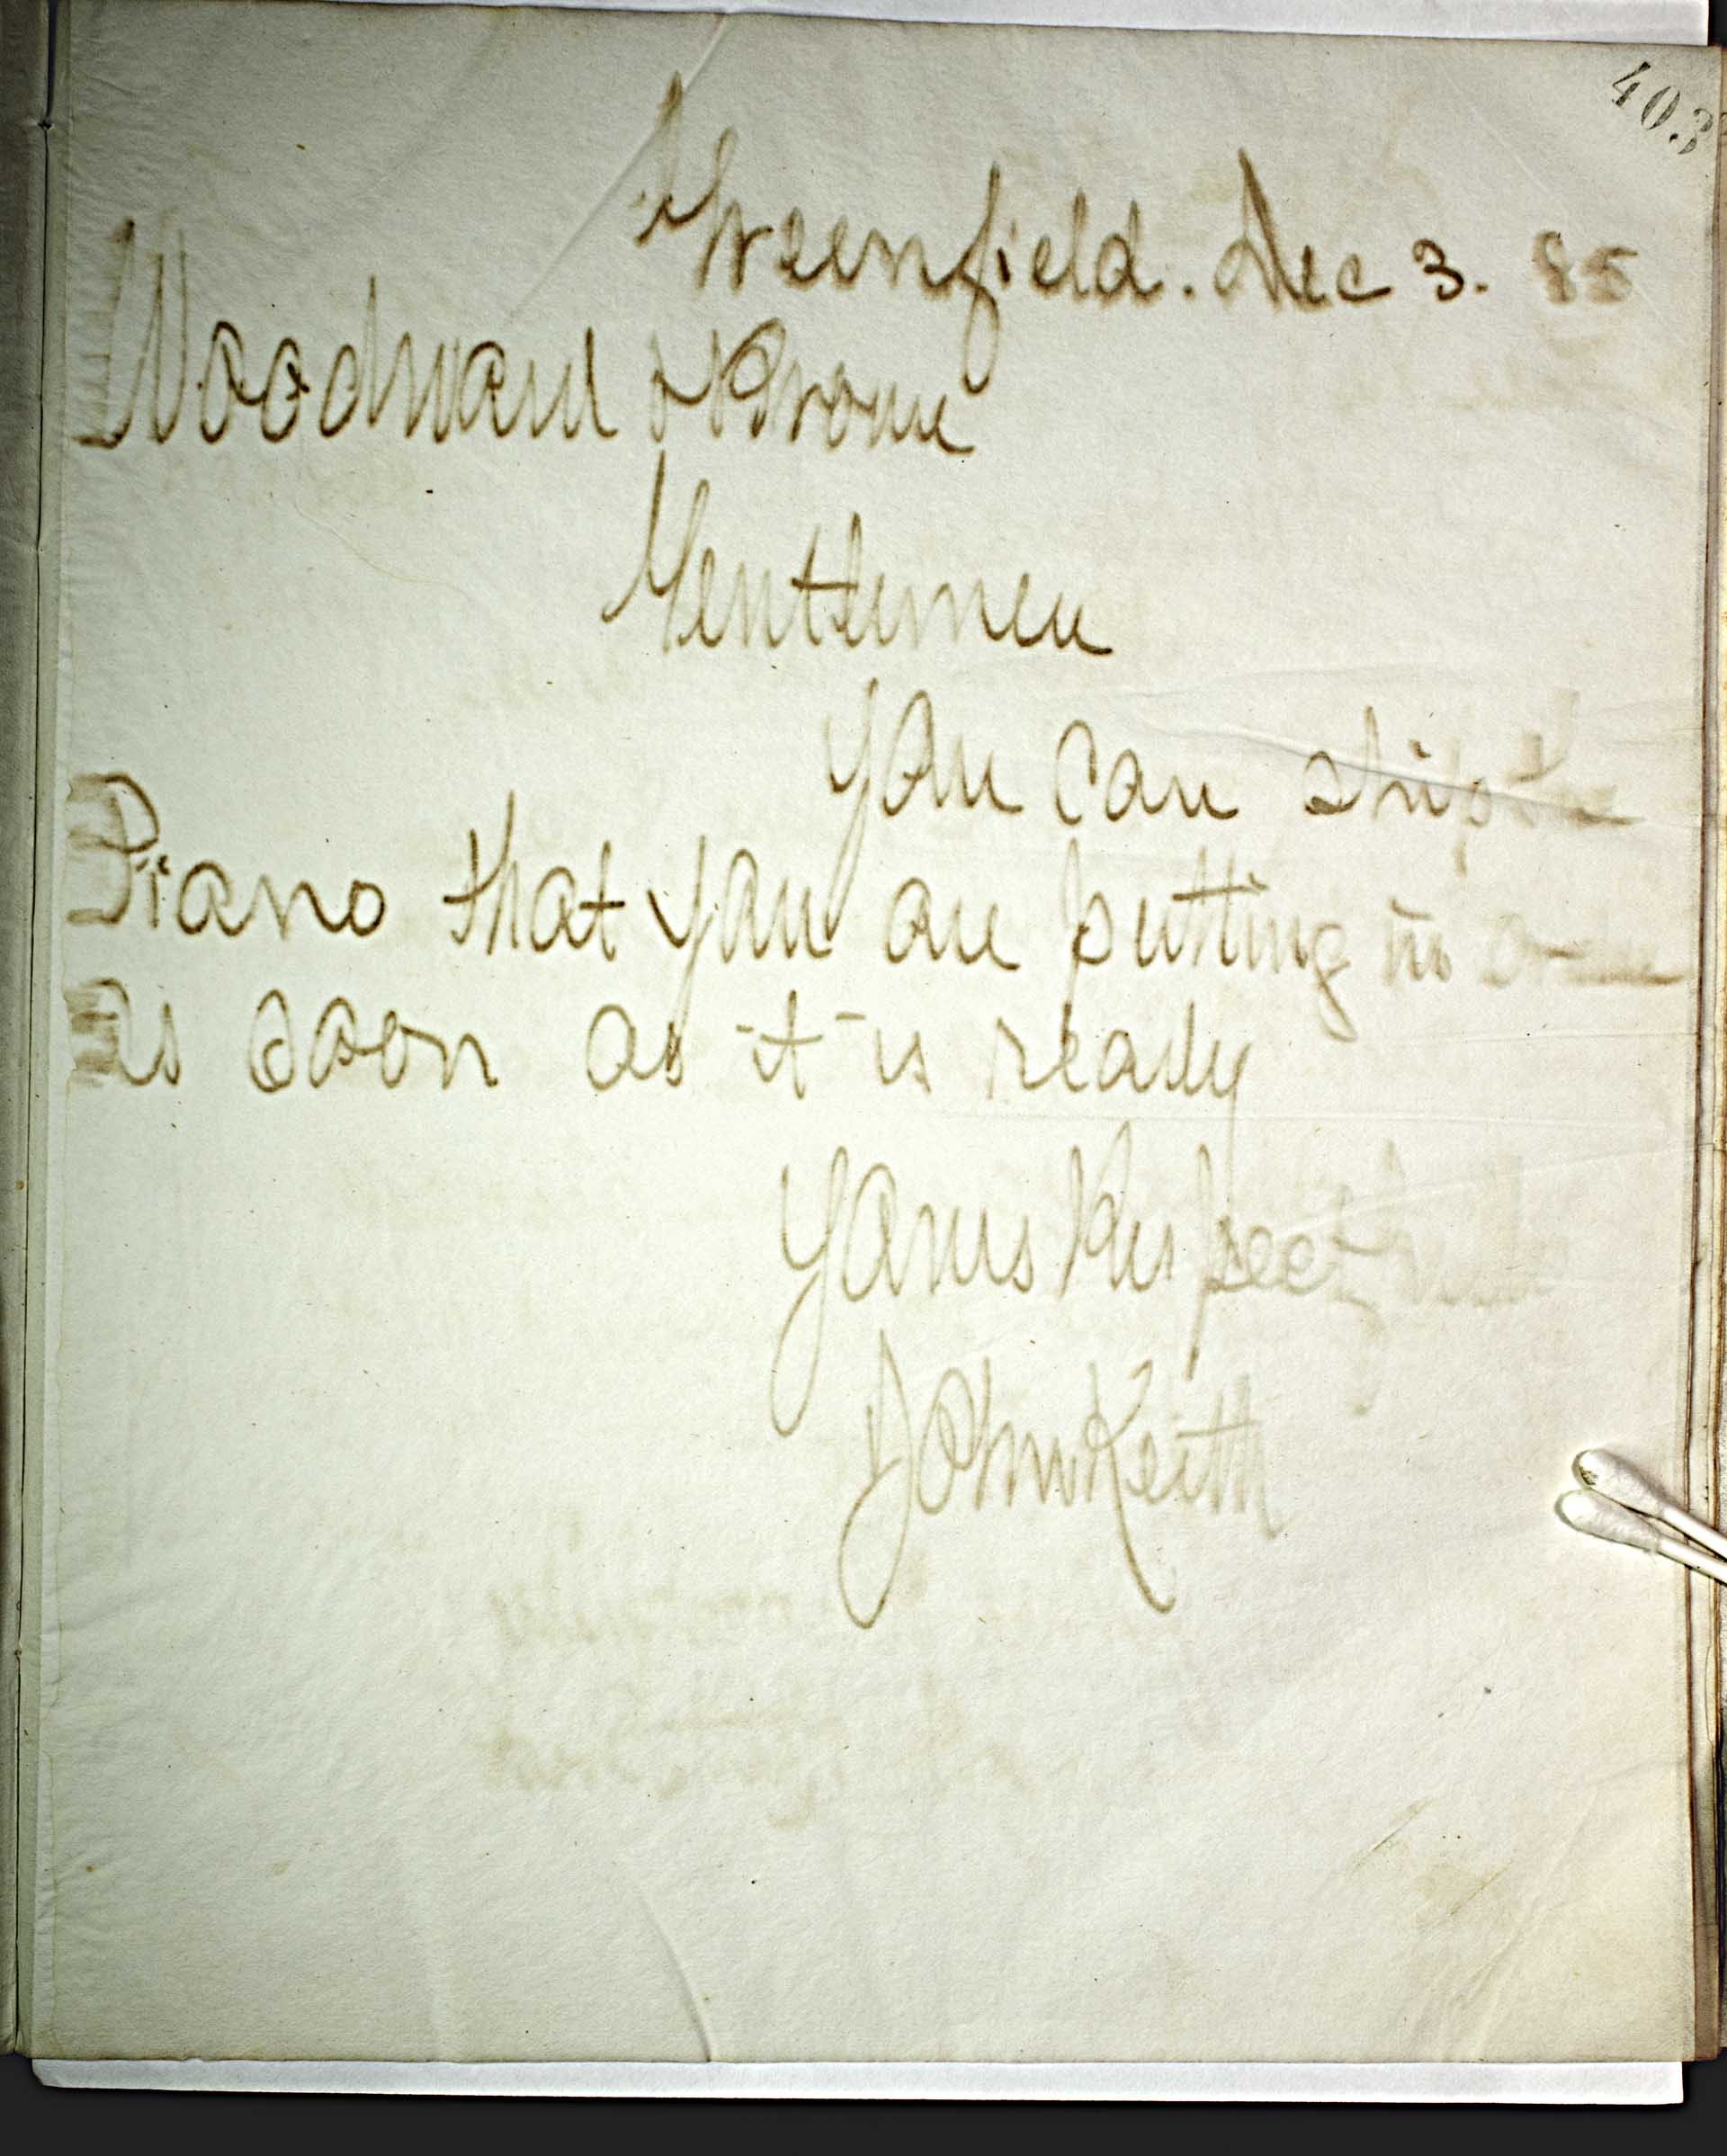 403
Greenfield. Dec 3. 85
Woodward & Brown
Gentlemen
You can ship the
Piano that you are putting in order
as soon as it is ready
Yours Respectfully
John Keith